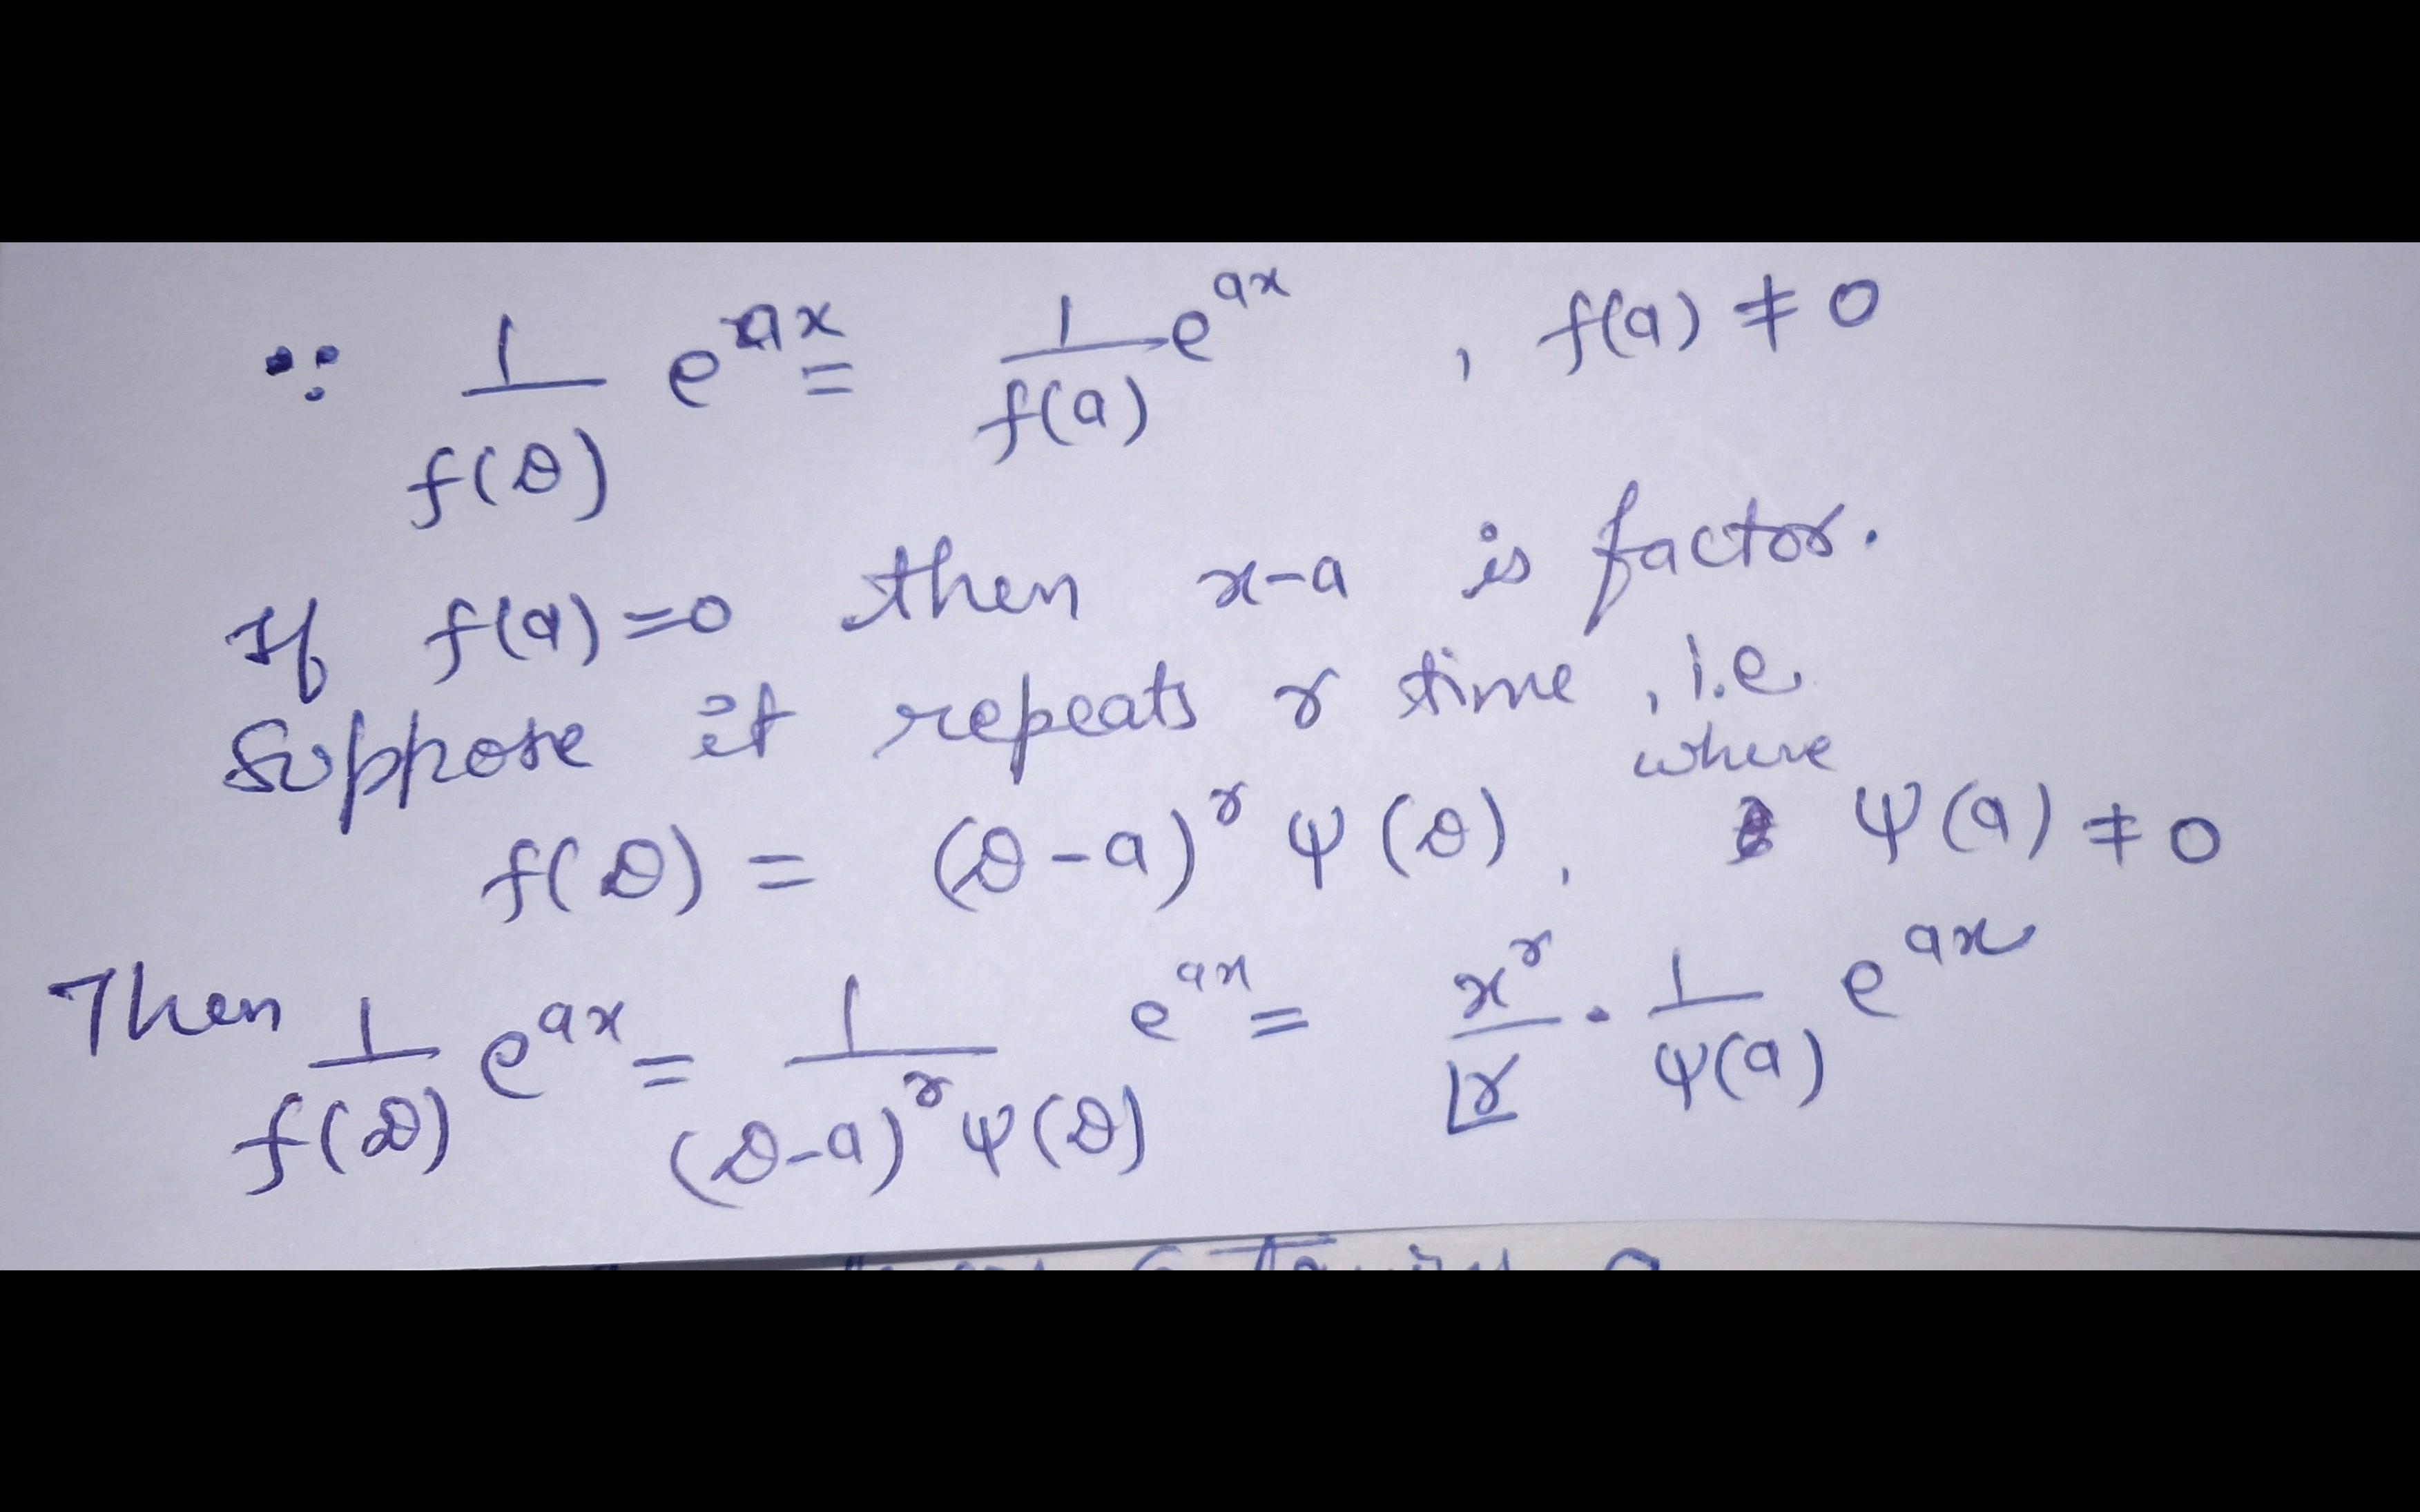 ∵ 1/f(D) e^{ax} = 1/f(a) e^{ax} , f(a) ≠ 0
If f(a)=0 then x-a is factor.
Suppose it repeats r time , i.e
f(D) = (D-a)^r ψ(D) , where ψ(a) ≠ 0
Then 1/f(D) e^{ax} = 1/((D-a)^r ψ(D)) e^{ax} = x^r/⌊r · 1/ψ(a) e^{ax}